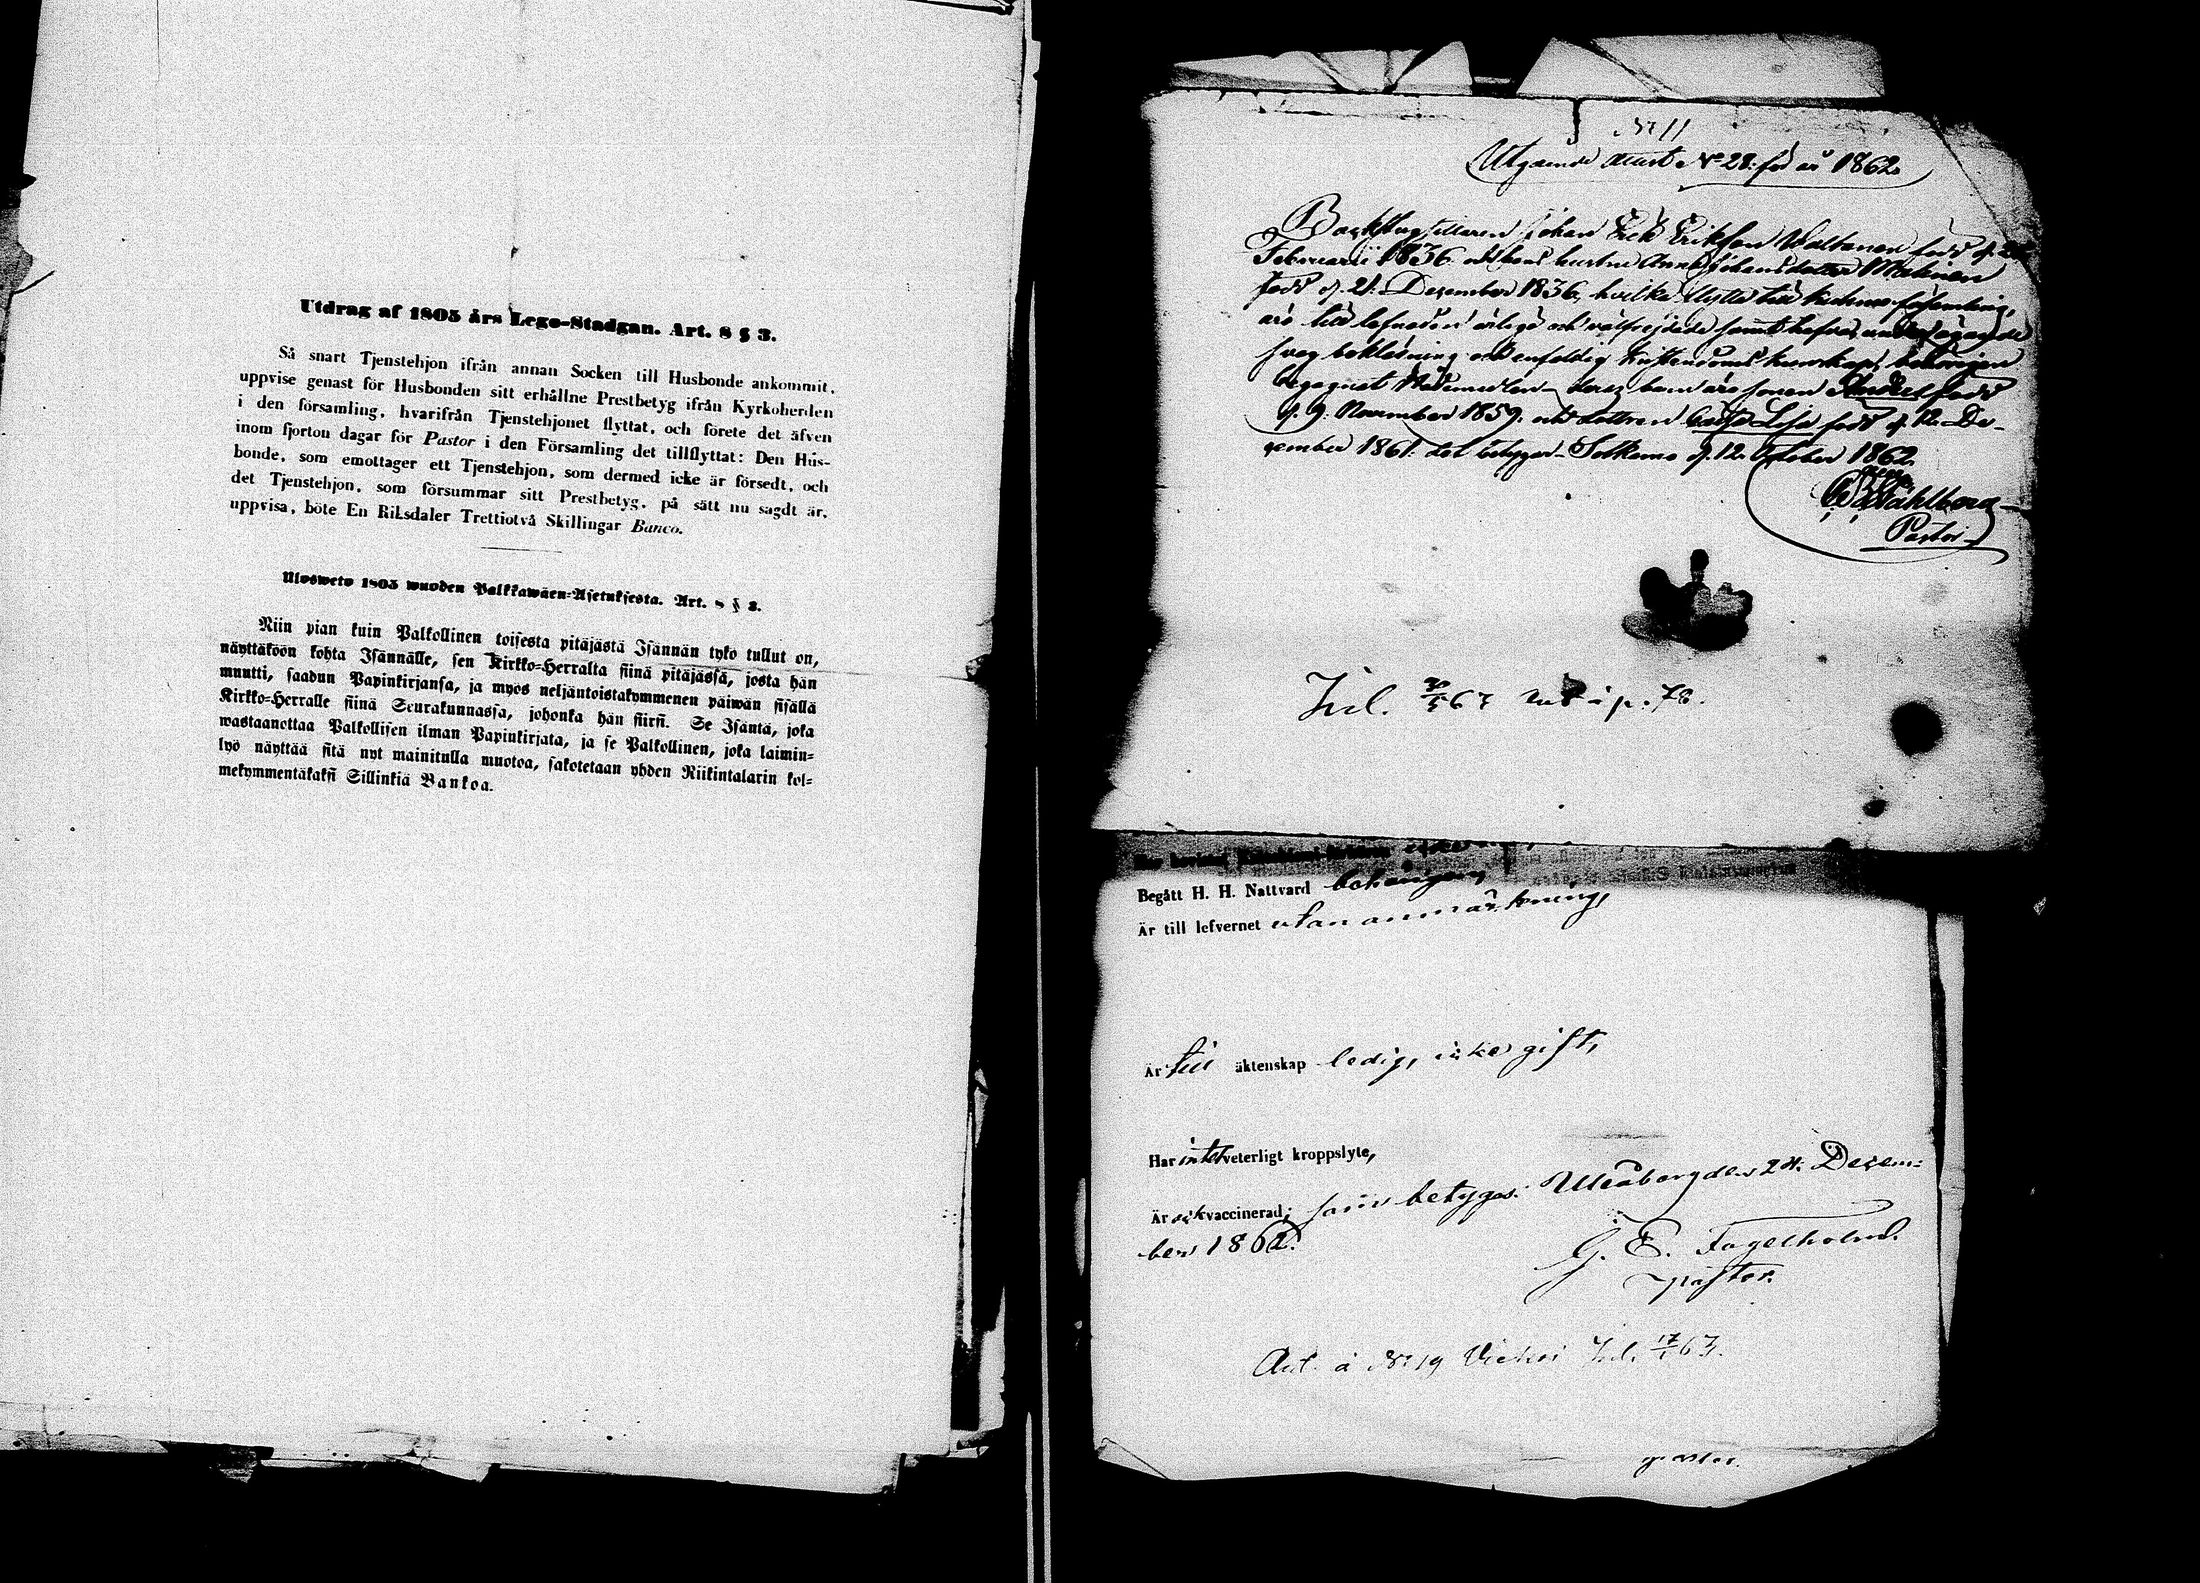 Utdrag af 1805 års Lego-Stadgan. Art. 8 § 3.
Så snart Tjenstehjon ifrån annan Socken till Husbonde ankommit,
uppvise genast för Husbonden sitt erhållne Prestbetyg ifrån Kyrkoherden
i den församling, hvarifrån Tjenstehjonet flyttat, och förete det äfven
inom fjorton dagar för Pastor i den Församling det tillflyttat: Den Hus-
bonde, som emottager ett Tjenstehjon, som dermed icke är försedt, och
det Tjenstehjon, som försummar sitt Prestbetyg, på sätt nu sagdt är,
uppvisa, böte En Riksdaler Trettiotvå Skillingar Banco.
Uloswetv 1805 wuoden Palkkawäen-Asetuksesta. Art. 8 § 3.
Niin pian kuin Palkollinen toisesta pitäjästä Isännän tykö tullut on,
näyttäköön kohta Isännälle, sen Kirkko-Herralta siinä pitäjässä, josta hän
muutti, saadun Papinkirjansa, ja myös neljäntoistakymmenen päiwän sisällä
Kirkko-Herralle siinä Seurakunnassa, johonka hän siirsi. Se Isäntä, joka
wastaanottaa Palkollisen ilman Papinkirjata, ja se Palkollinen, joka laimin-
lyö näyttää sitä nyt mainitulla muotoa, sakotetaan yhden Riikintalarin kol-
mekymmentäkaksi Sillinkiä Bankoa.
N:o 11
Utgående attest N:o 28. för år 1862.
Backstugusittaren Johan Erik Eriksson Waltanen född d.
Februarii 1836. och hans hustru Anna Johansdotter
född d. 21. December 1836, hvilka flytta till församling,
äro till lefnaden ärlige och välfrejdade samt hafva
svag boklesning och enfaldig kristendoms kunskap,
begagnat Nådemedlen. deras barn äro sonen född
d. 9. November 1859. och dottren Caisa Lisa född d. 12. De-
cember 1861. det betygar. Sotkamo d. 12. October 1862.
Wahlberg
Pastor
Inl. 63 i p. 78.
Begått H. H. Nattvard behörigen,
Är till lefvernet utan anmärkning,
Är till äktenskap ledig, icke gift,
Har intet veterligt kroppslyte,
Är ock vaccinerad; som betygas. Uleåborg den 24. Decem-
ber 1862.
G. E. Fogelholm.
Pastor.
Ant. å N:o 19 Inl. 17/1 63.
pastor.